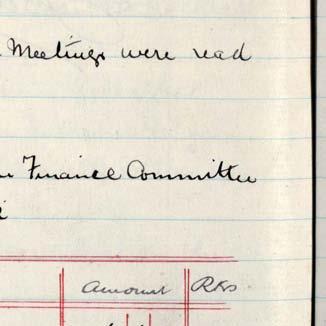 Meetings were read
Finance Committee
Amount Rks